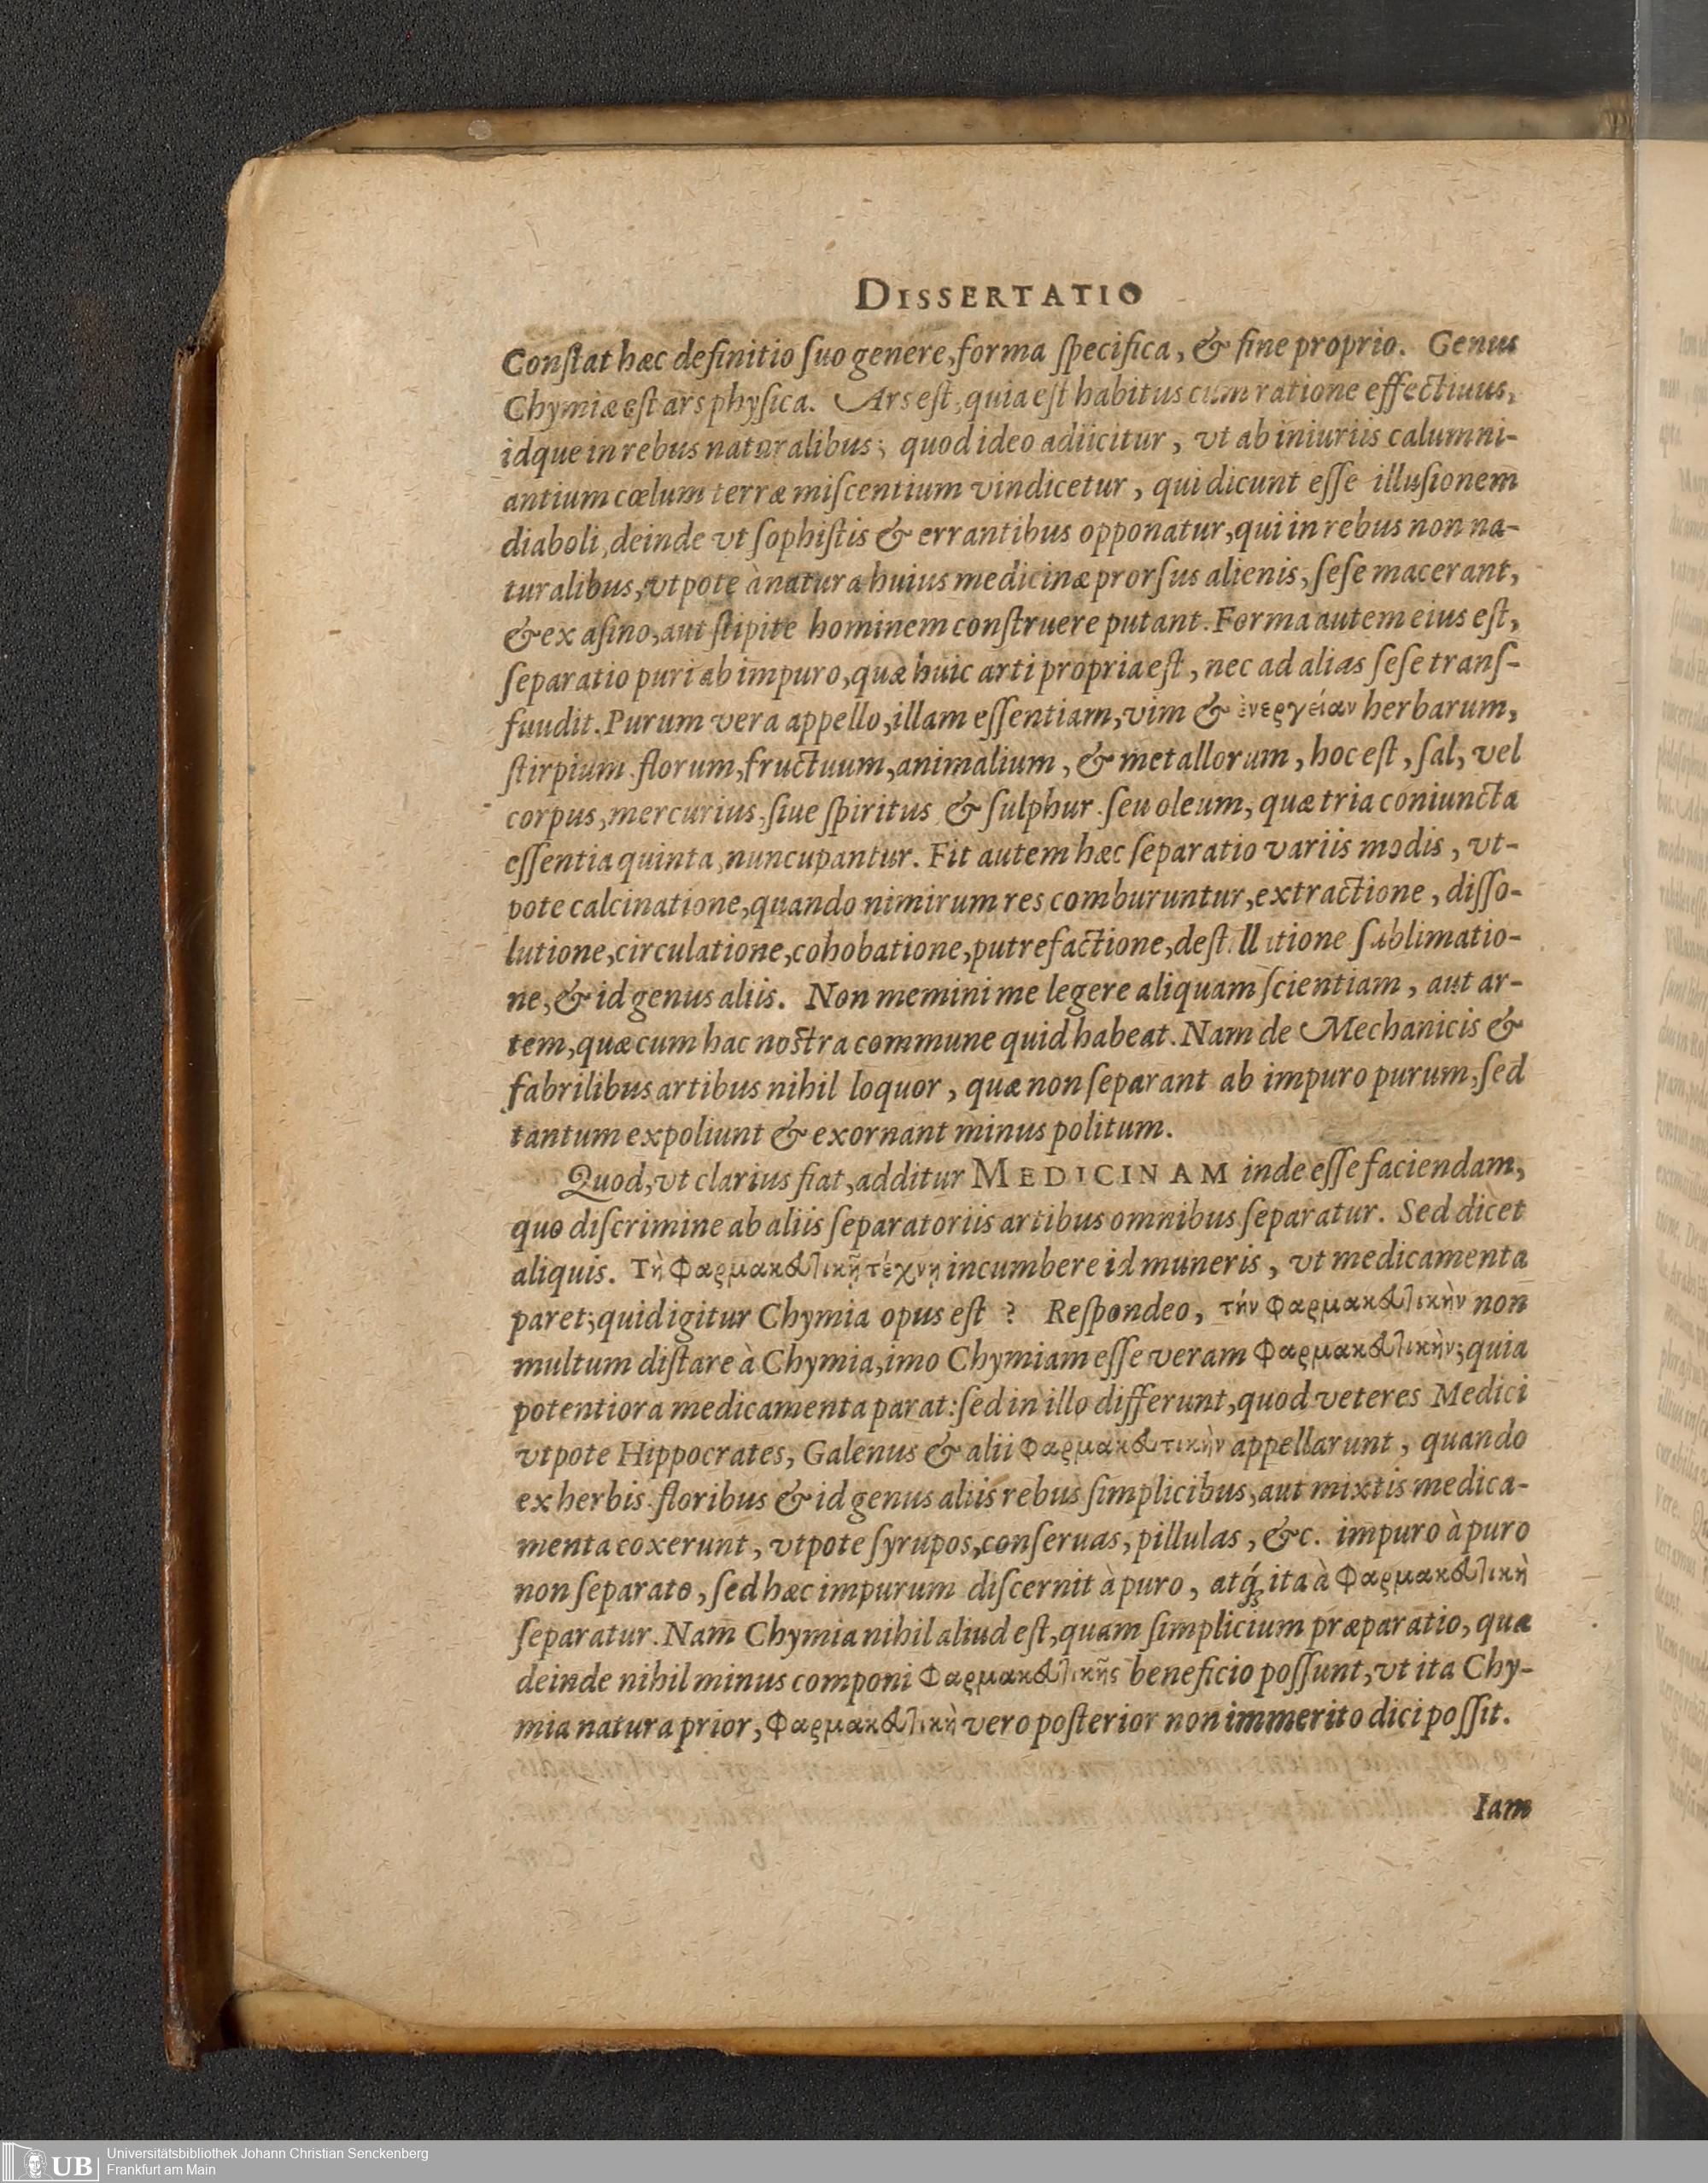 DISSERTATIO
Conſtat hæc definitio ſuo genere, forma ſpecifica, & fine proprio. Genus
Chymiæ eſt ars phyſica. Ars eſt, quia eſt habitus cum ratione effectiuus,
idque in rebus naturalibus; quod ideo adiicitur, vt ab iniuriis calumni-
antium cœlum terræ miſcentium vindicetur, qui dicunt eſſe illuſionem
diaboli, deinde vt ſophiſtis & errantibus opponatur, qui in rebus non na-
turalibus, vtpote à natura huius medicinæ prorſus alienis, ſeſe macerant,
& ex aſino, aut ſtipite hominem conſtruere putant. Forma autem eius eſt,
ſeparatio puri ab impuro, quæ huic arti propria eſt, nec ad alias ſeſe tranſ-
fuudit. Purum vera appello, illam eſſentiam, vim & ἐνεργείαν herbarum,
ſtirpium florum, fructuum, animalium, & metallorum, hoc eſt, ſal, vel
corpus, mercurius, ſiue ſpiritus & ſulphur ſeu oleum, quæ tria coniuncta
eſſentia quinta nuncupantur. Fit autem hæc ſeparatio variis modis, vt-
pote calcinatione, quando nimirum res comburuntur, extractione, diſſo-
lutione, circulatione, cohobatione, putrefactione, deſtillatione ſublimatio-
ne, & id genus aliis. Non memini me legere aliquam ſcientiam, aut ar-
tem, quæ cum hac noſtra commune quid habeat. Nam de Mechanicis &
fabrilibus artibus nihil loquor, quæ non ſeparant ab impuro purum, ſed
tantum expoliunt & exornant minus politum.
Quod, vt clarius fiat, additur MEDICINAM inde eſſe faciendam,
quo diſcrimine ab aliis ſeparatoriis artibus omnibus ſeparatur. Sed dicet
aliquis. Τὴ φαρμακευτικῇ τέχνῃ incumbere id muneris, vt medicamenta
paret; quid igitur Chymia opus eſt? Reſpondeo, τήν φαρμακευτικὴν non
multum diſtare à Chymia, imo Chymiam eſſe veram φαρμακευτικὴν; quia
potentiora medicamenta parat: ſed in illo differunt, quod veteres Medici
vtpote Hippocrates, Galenus & alii φαρμακευτικὴν appellarunt, quando
ex herbis floribus & id genus aliis rebus ſimplicibus, aut mixtis medica-
menta coxerunt, vtpote ſyrupos, conſeruas, pillulas, &c. impuro à puro
non ſeparato, ſed hæc impurum diſcernit à puro, atq́; ita à φαρμακευτικὴ
ſeparatur. Nam Chymia nihil aliud eſt, quam ſimplicium præparatio, quæ
deinde nihil minus componi φαρμακευτικῆς beneficio poſſunt, vt ita Chy-
mia natura prior, φαρμακευτικὴ vero poſterior non immerito dici poſſit.
Iam
UB
Universitätsbibliothek Johann Christian Senckenberg
Frankfurt am Main